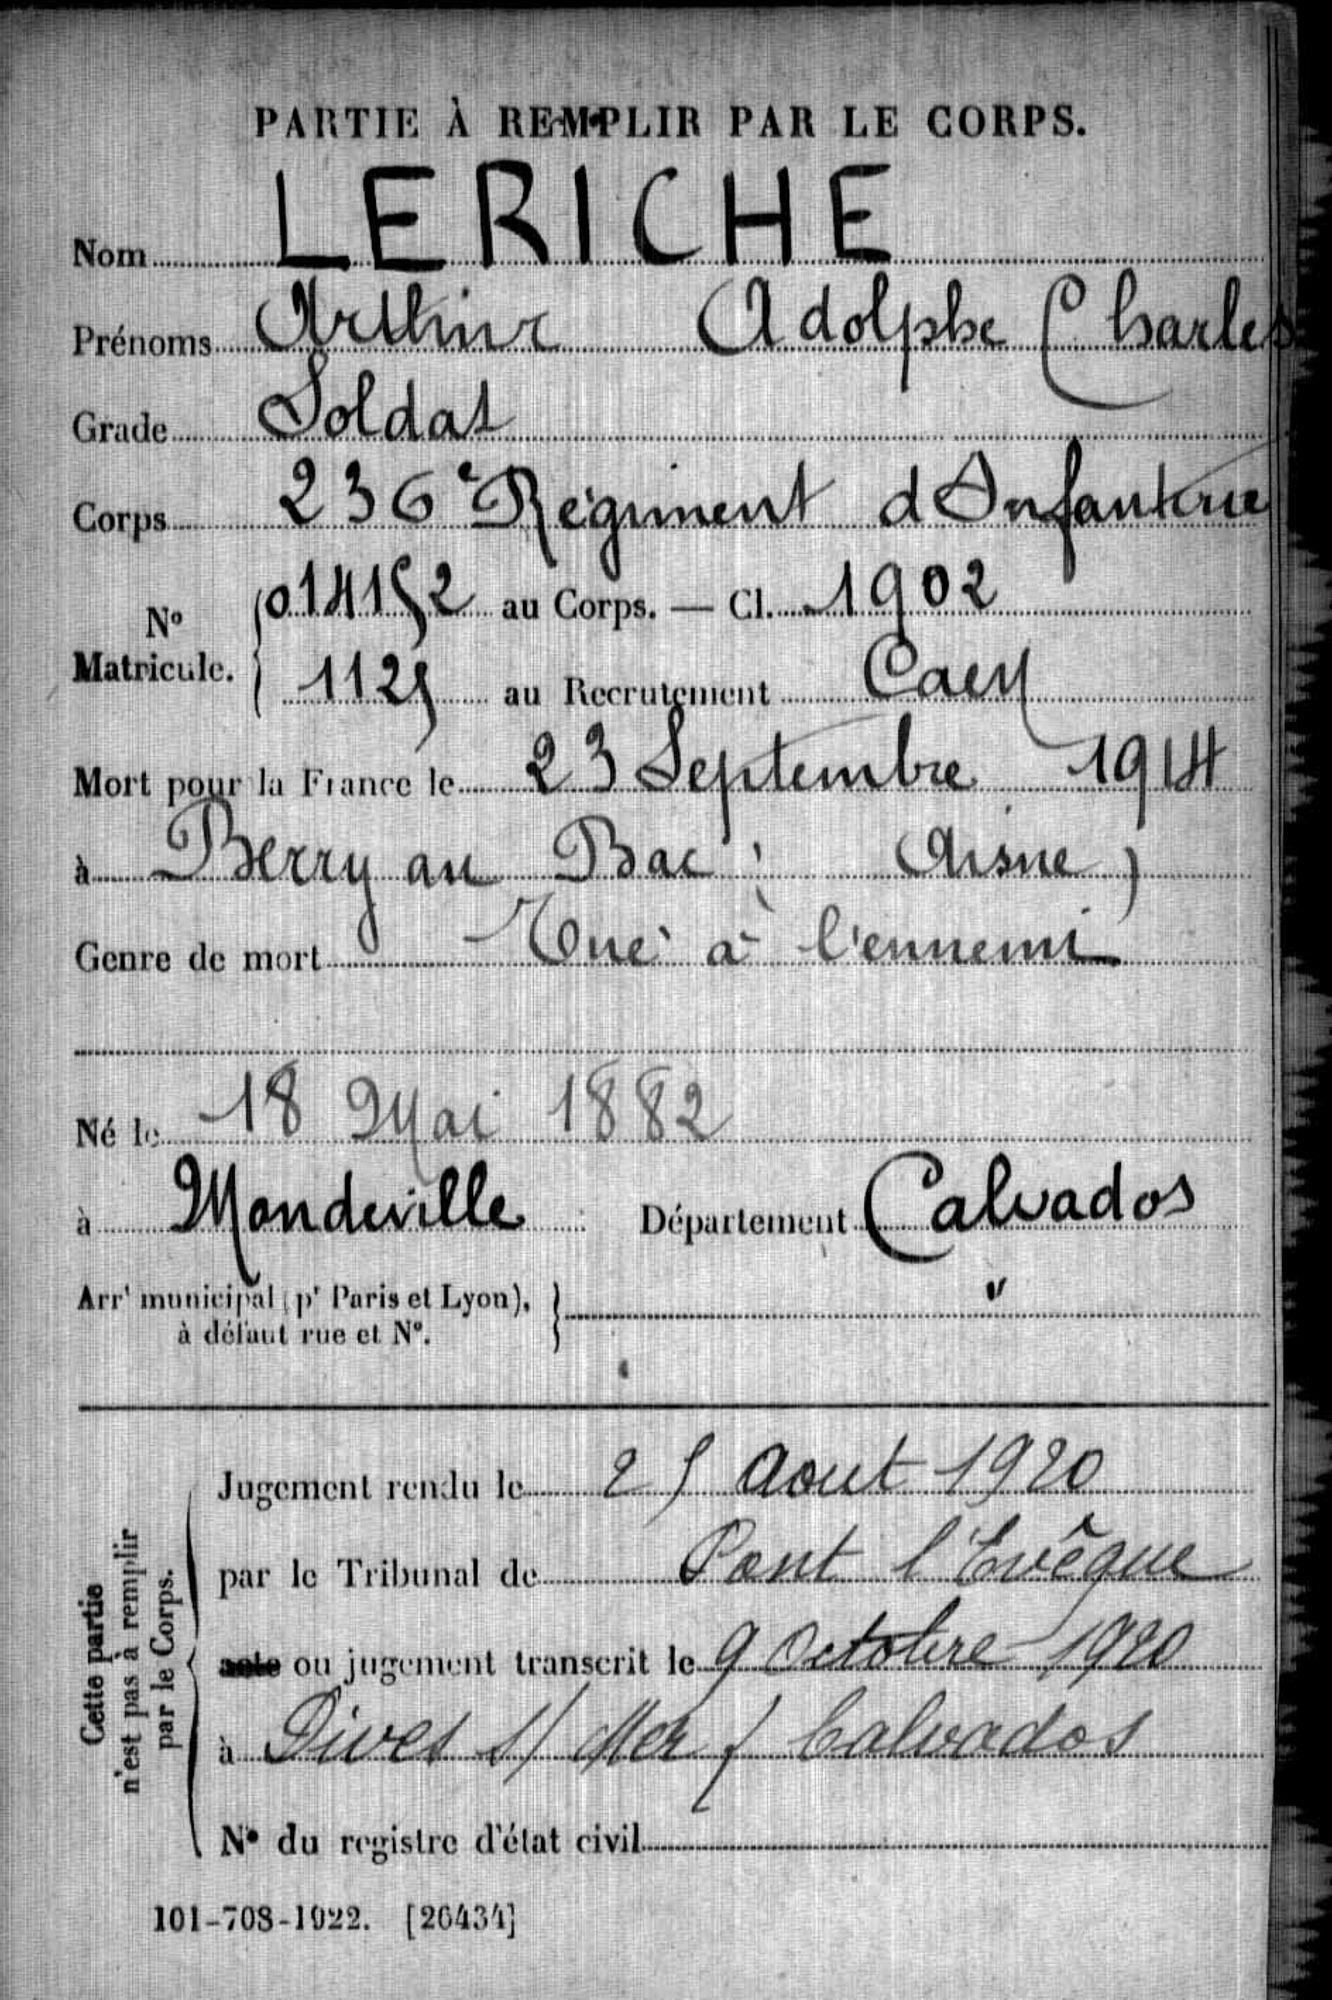 PARTIE À REMPLIR PAR LE CORPS.
Nom LERICHE
Prénoms Arthur Adolphe Charles
Grade Soldat
Corps 236e Régiment d Infanterie
No Matricule. { 014152 au Corps. — Cl. 1902
1125 au Recrutement Caen
Mort pour la France le 23 Septembre 1914
à Berry au Bac (Aisne)
Genre de mort Tué à l'ennemi
Né le 18 Mai 1882
à Mondeville Département Calvados
Arrt municipal (pr Paris et Lyon), }
à défaut rue et No. "
Cette partie
n'est pas à remplir
par le Corps.
Jugement rendu le 25 Aout 1920
par le Tribunal de Pont l'Evêque
acte ou jugement transcrit le 9 Octobre 1920
à Dives s/ Mer / Calvados
No du registre d'état civil
101-708-1922. [26434]